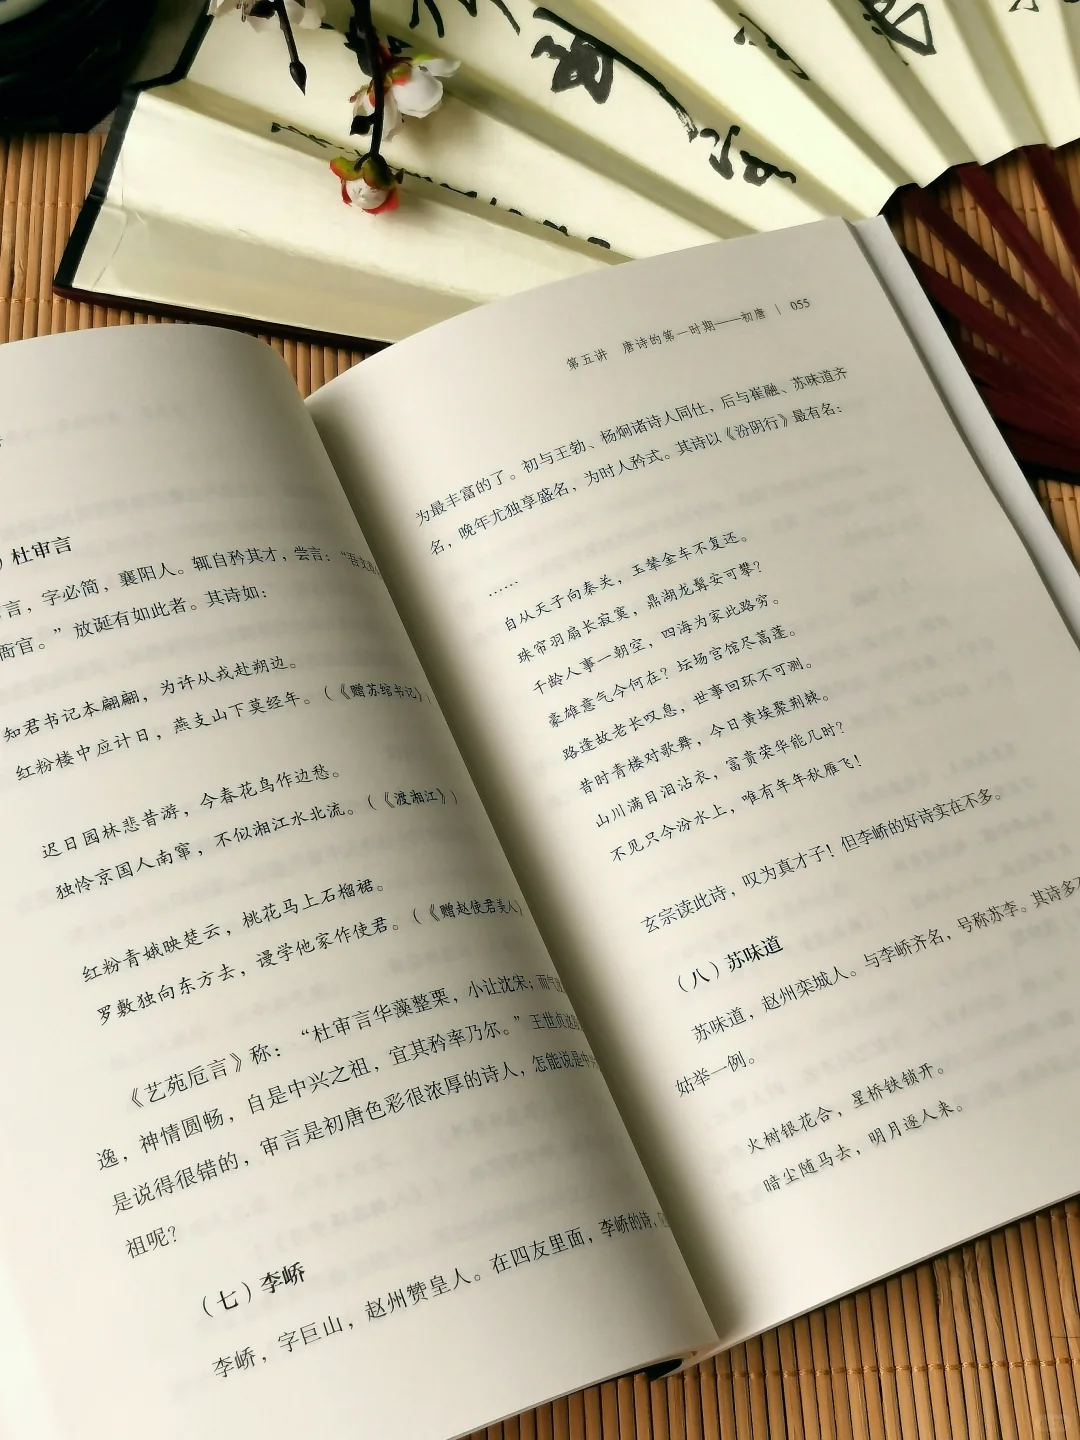 杜审言
言，字必简，襄阳人。辄自矜其才，尝言：“吾文
衙官。”放诞有如此者。其诗如：
知君书记本翩翩，为许从戎赴朔边。
红粉楼中应计日，燕支山下莫经年。（《赠苏绾书记》）
迟日园林悲昔游，今春花鸟作边愁。
独怜京国人南窜，不似湘江水北流。（《渡湘江》）
红粉青娥映楚云，桃花马上石榴裙。
罗敷独向东方去，谩学他家作使君。（《赠赵使君美人》
《艺苑卮言》称：“杜审言华藻整栗，小让沈宋；而气
逸，神情圆畅，自是中兴之祖，宜其矜率乃尔。”王世贞这
是说得很错的，审言是初唐色彩很浓厚的诗人，怎能说是中
祖呢？
（七）李峤
李峤，字巨山，赵州赞皇人。在四友里面，李峤的诗，
第五讲 唐诗的第一时期——初唐 | 055
为最丰富的了。初与王勃、杨炯诸诗人同仕，后与崔融、苏味道齐
名，晚年尤独享盛名，为时人矜式。其诗以《汾阴行》最有名：
……
自从天子向秦关，玉辇金车不复还。
珠帘羽扇长寂寞，鼎湖龙髯安可攀？
千龄人事一朝空，四海为家此路穷。
豪雄意气今何在？坛场宫馆尽蒿蓬。
路逢故老长叹息，世事回环不可测。
昔时青楼对歌舞，今日黄埃聚荆棘。
山川满目泪沾衣，富贵荣华能几时？
不见只今汾水上，唯有年年秋雁飞！
玄宗读此诗，叹为真才子！但李峤的好诗实在不多。
（八）苏味道
苏味道，赵州栾城人。与李峤齐名，号称苏李。其诗多
姑举一例。
火树银花合，星桥铁锁开。
暗尘随马去，明月逐人来。